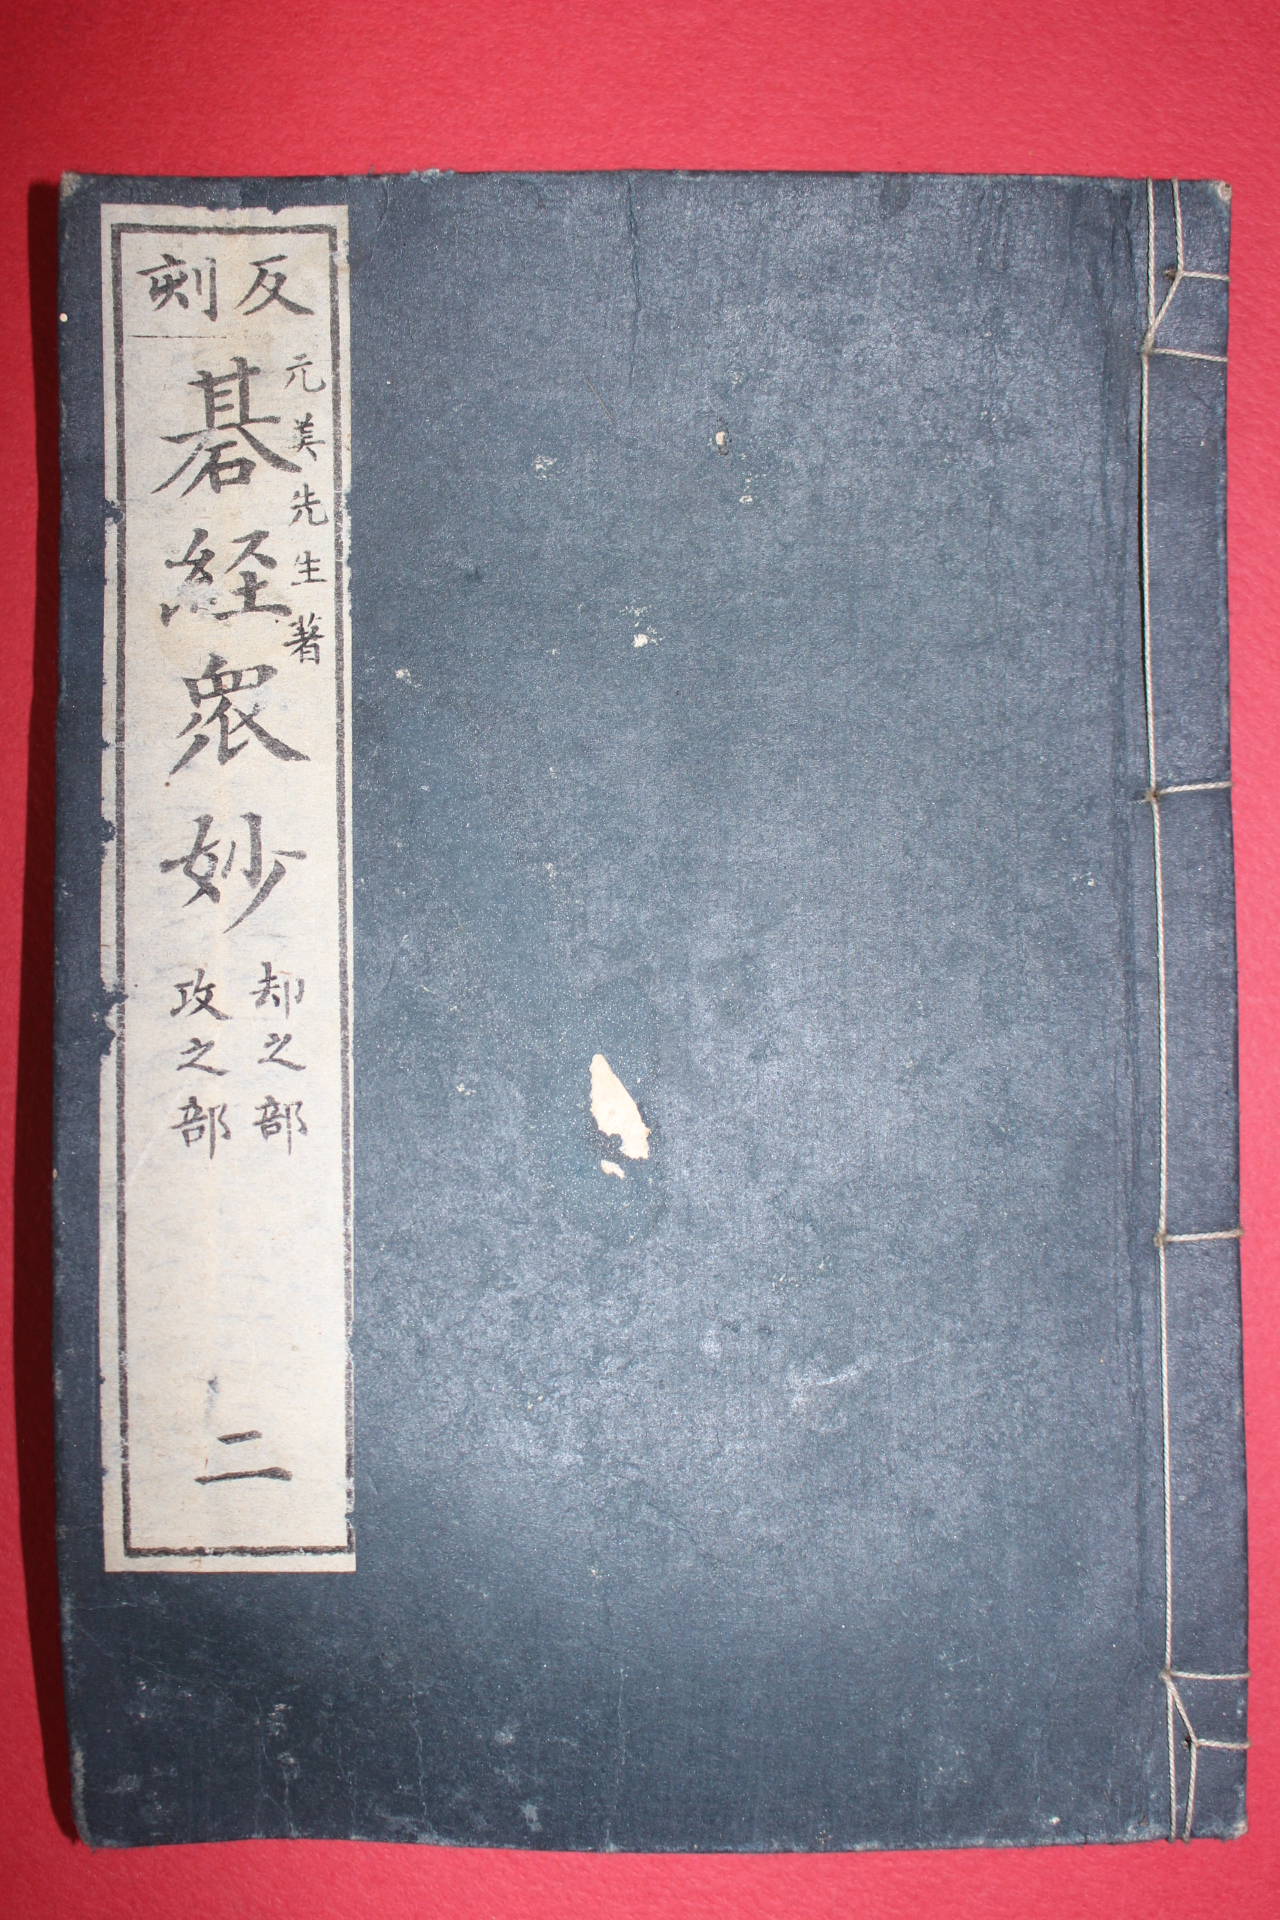 反刻
元美先生著
碁経衆妙
却之部
攻之部
二